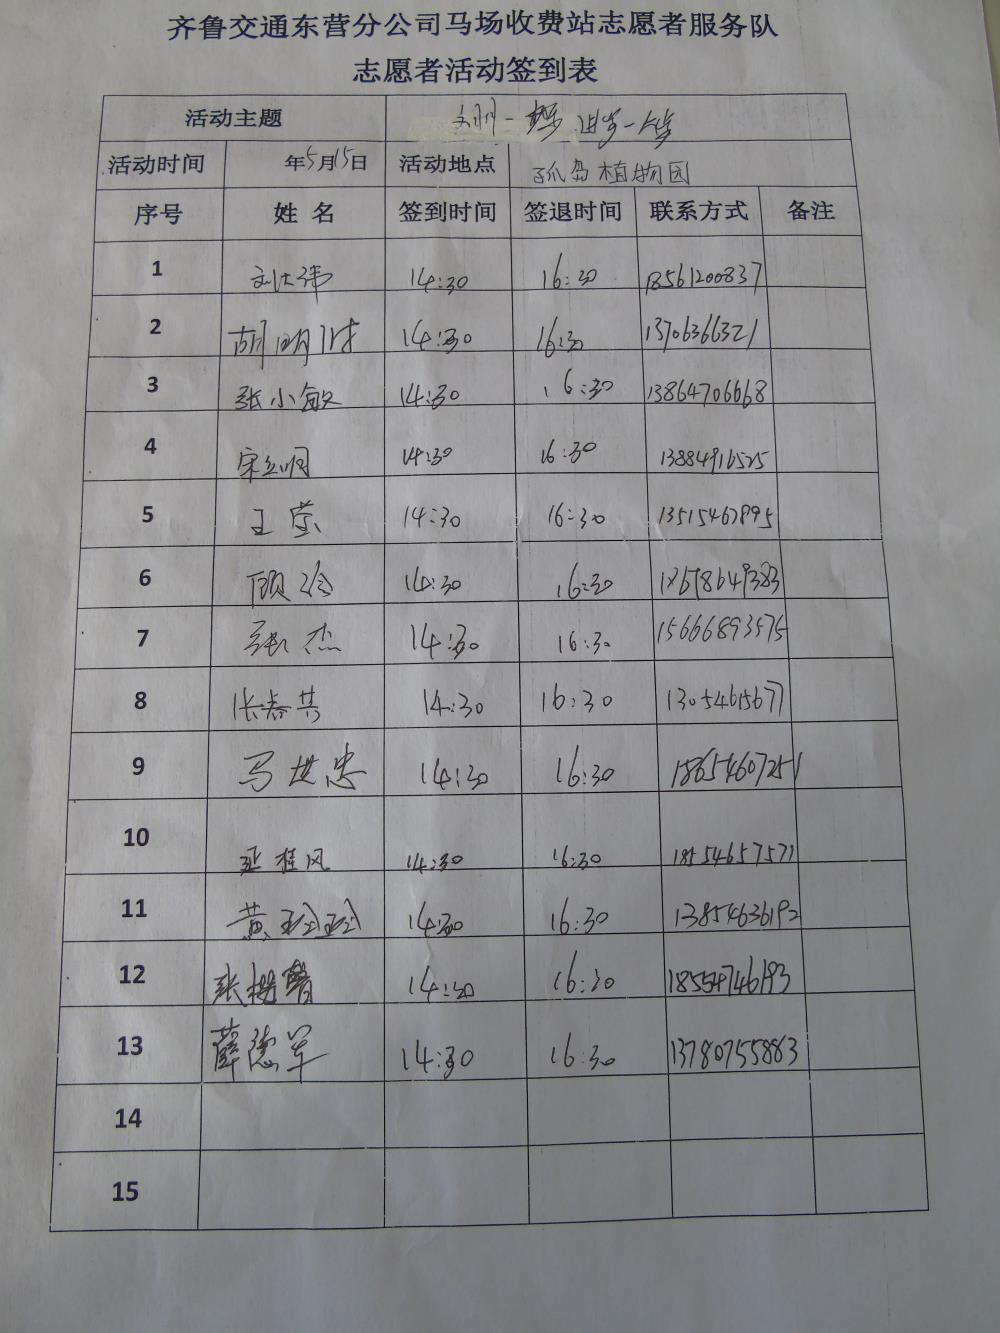 齐鲁交通东营分公司马场收费站志愿者服务队
志愿者活动签到表
活动主题 文明一 进步一
活动时间 年5月15日 活动地点 孤岛植物园
序号 姓名 签到时间 签退时间 联系方式 备注
1 刘 伟 14:30 16:30 18561200837
2 胡明 14:30 16:30 13706366321
3 张小敏 14:30 16:30 13864706668
4 宋立明 14:30 16:30 13884916525
5 王莹 14:30 16:30 13515467895
6 顾 14:30 16:30 18678649383
7 张杰 14:30 16:30 15666893575
8 张春其 14:30 16:30 13054615677
9 马世忠 14:30 16:30 18654607251
10 桂风 14:30 16:30 18554657571
11 黄玲玲 14:30 16:30 13854636192
12 张 馨 14:30 16:30 18554746193
13 薛德军 14:30 16:30 13780755863
14
15